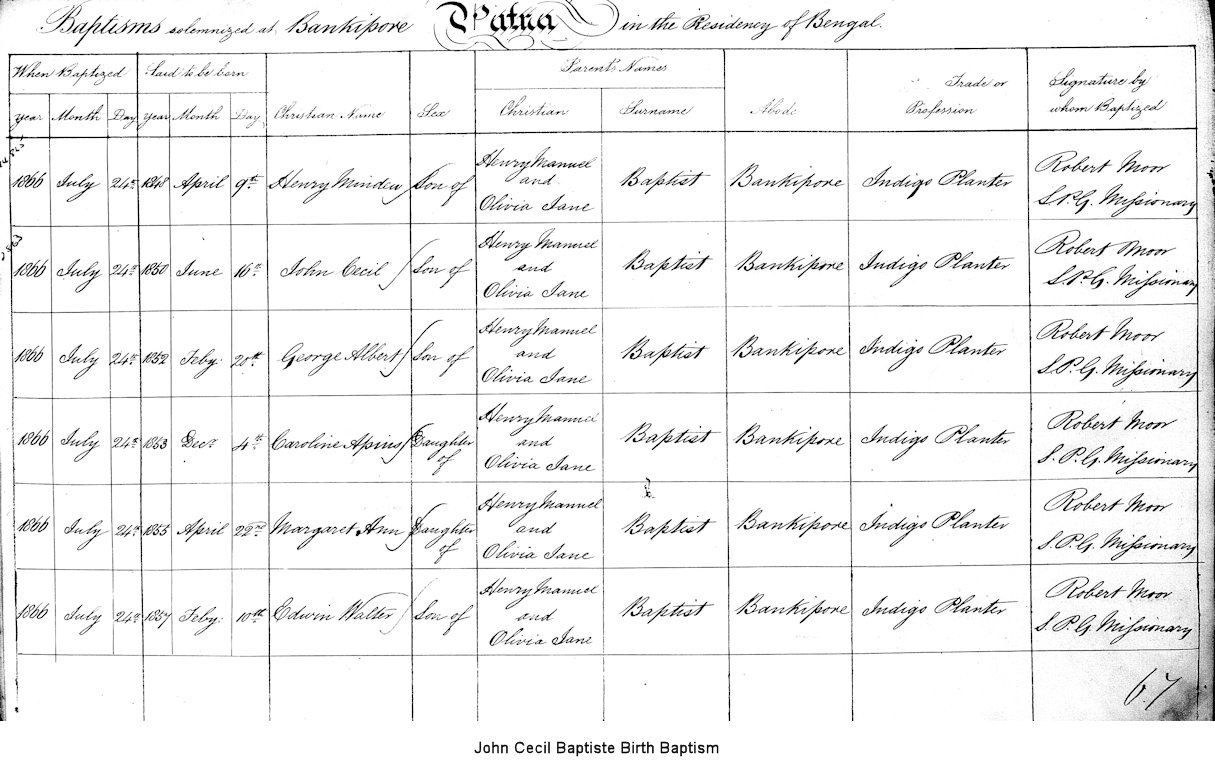 Baptisms solemnized at Bankipore Patna in the Residency of Bengal.
When Baptized Said to be born Parent's Names Trade or Signature by
Year Month Day Year Month Day Christian Name Sex Christian Surname Abode Profession whom Baptized
1866 July 24th 1848 April 9th Henry Minden Son of Henry Manuel and Olivia Jane Baptist Bankipore Indigo Planter Robert Moor S.P.G. Missionary
1866 July 24th 1850 June 16th John Cecil Son of Henry Manuel and Olivia Jane Baptist Bankipore Indigo Planter Robert Moor S.P.G. Missionary
1866 July 24th 1852 Feby. 20th George Albert Son of Henry Manuel and Olivia Jane Baptist Bankipore Indigo Planter Robert Moor S.P.G. Missionary
1866 July 24th 1853 Decr. 4th Caroline Daughter of Henry Manuel and Olivia Jane Baptist Bankipore Indigo Planter Robert Moor S.P.G. Missionary
1866 July 24th 1855 April 22nd Margaret Ann Daughter of Henry Manuel and Olivia Jane Baptist Bankipore Indigo Planter Robert Moor S.P.G. Missionary
1866 July 24th 1857 Feby. 10th Edwin Walter Son of Henry Manuel and Olivia Jane Baptist Bankipore Indigo Planter Robert Moor S.P.G. Missionary
67
John Cecil Baptiste Birth Baptism